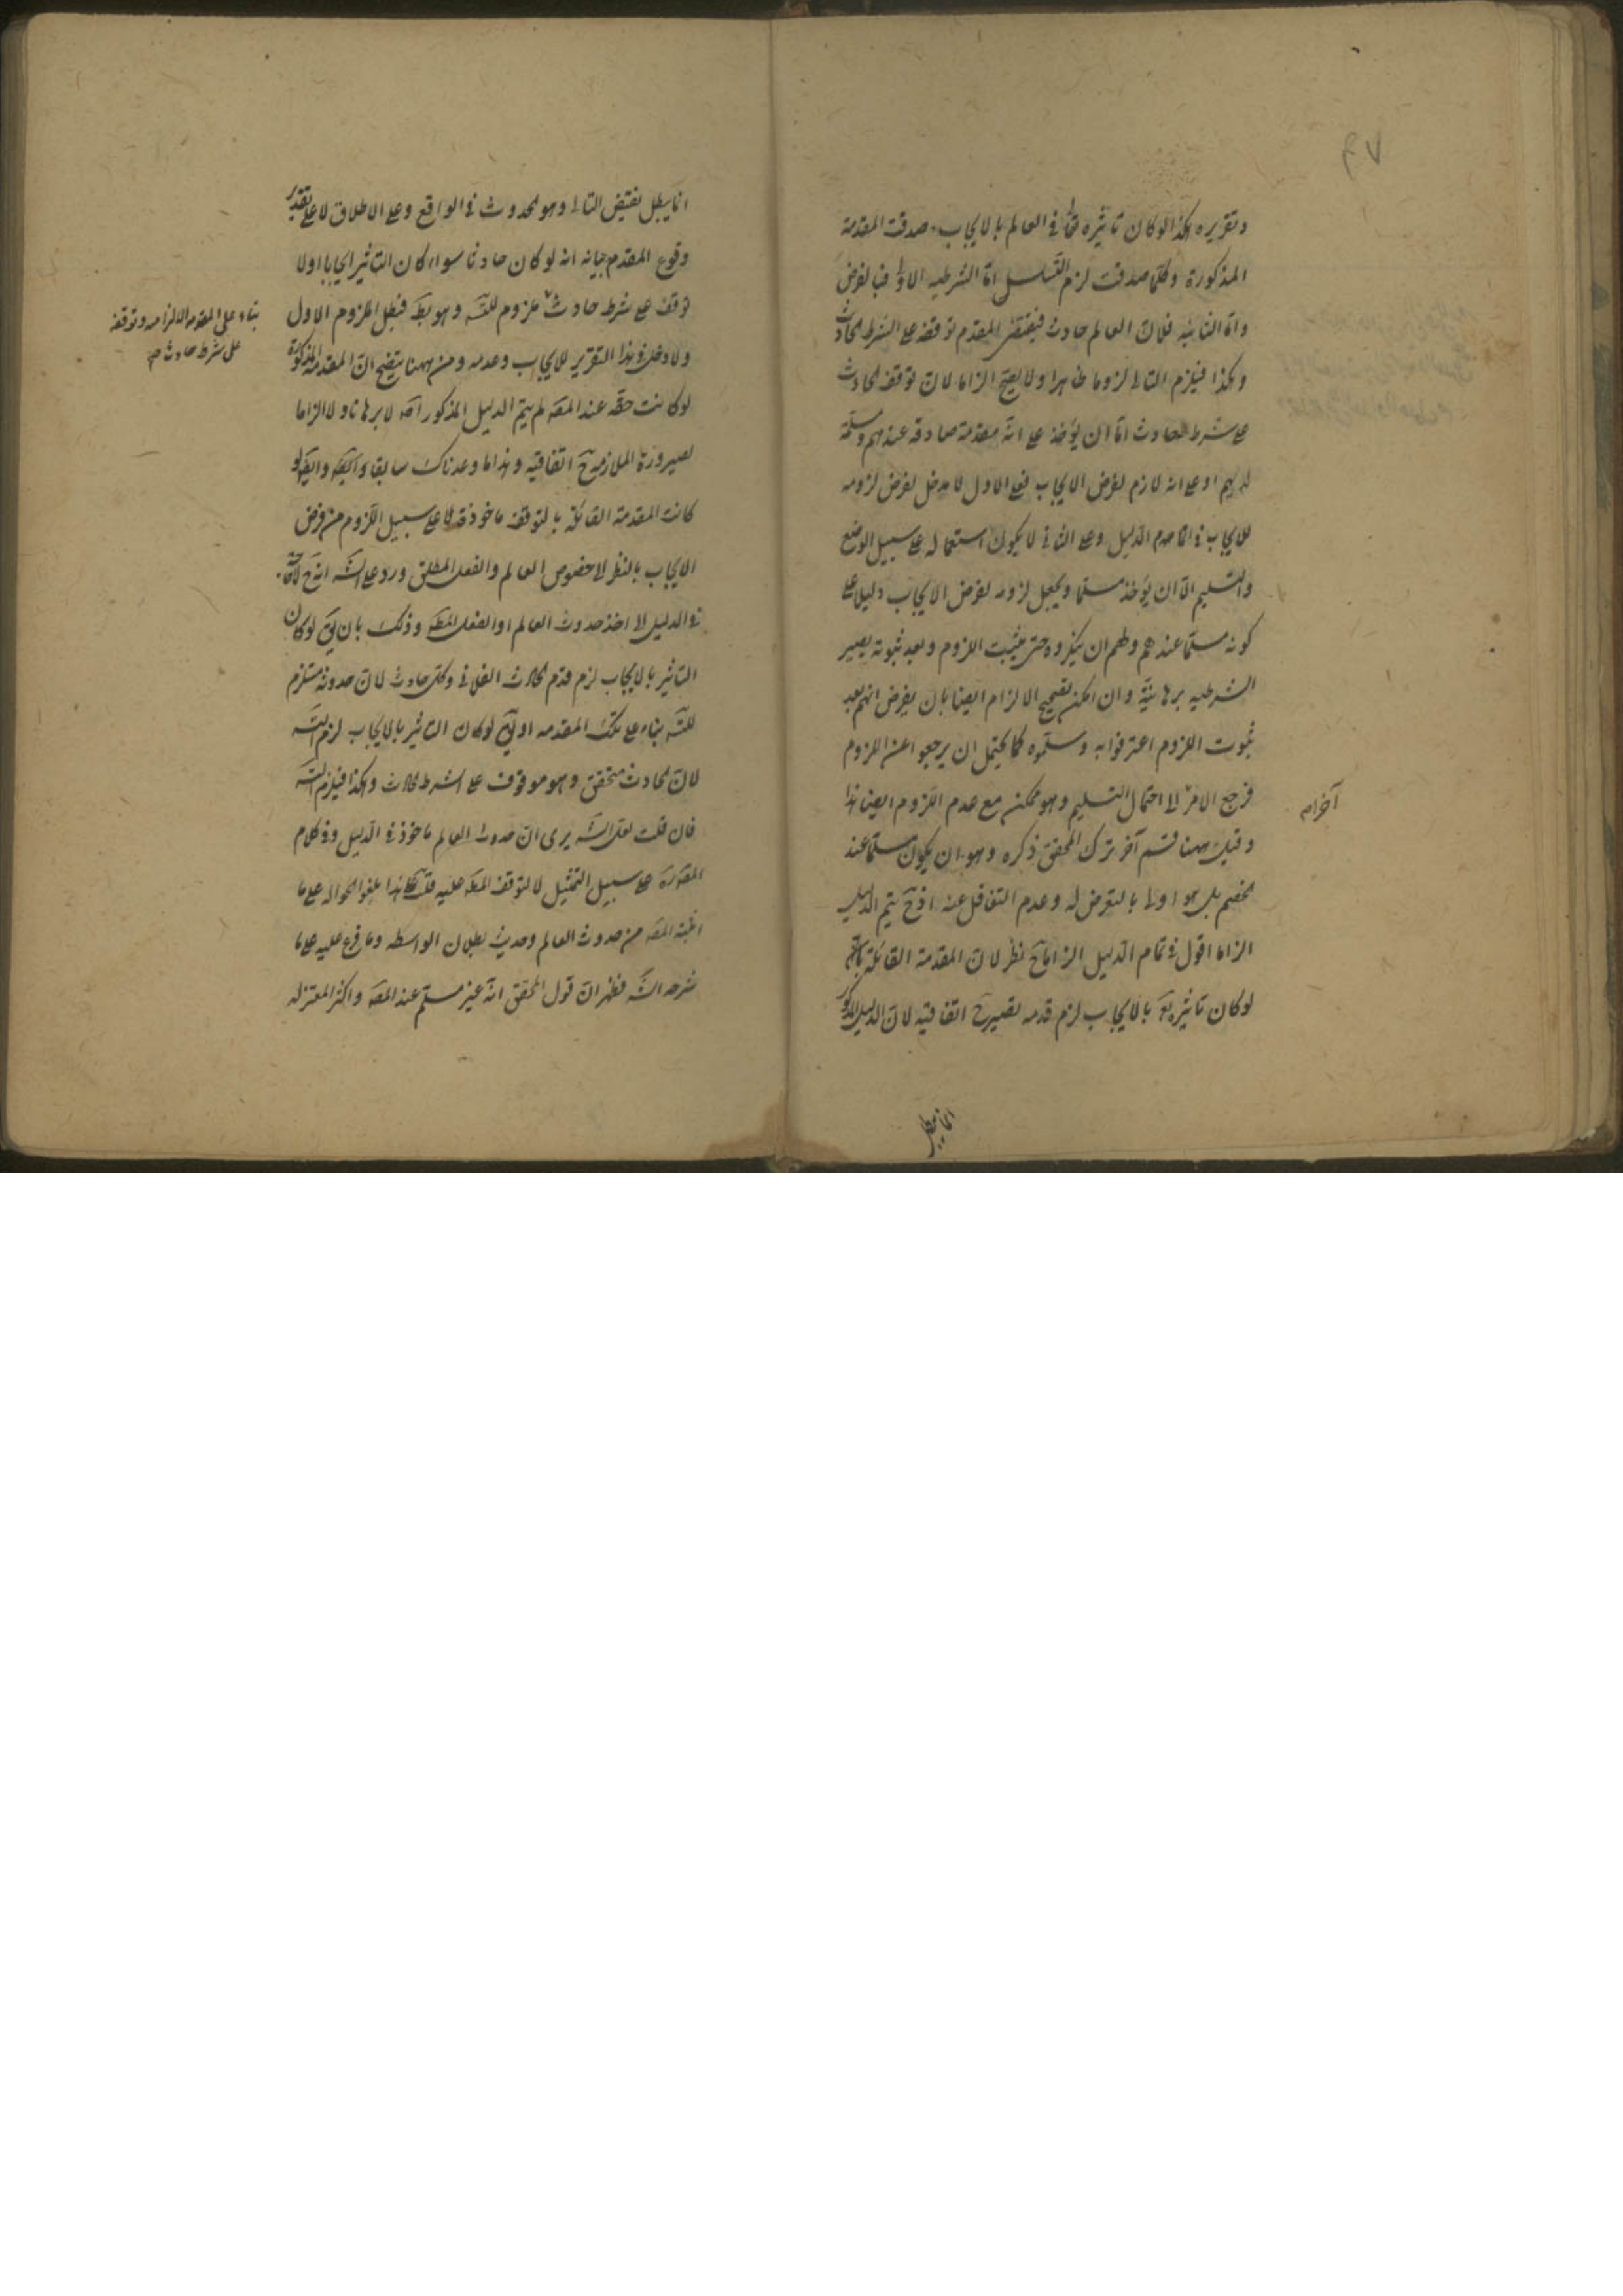 ٤٧
وتقريره هكذا لو كان تاثيره تعالى في العالم بالايجاب صدقت المقدمة
المذكورة وكلما صدقت لزم التسلسل اما الشرطيه الاولى فبالفرض
واما الثانيه فلان العالم حادث فيقتضى المقدم توقفه على الشرط الحادث
وهكذا فيلزم التالى لزوما ظاهرا ولا يصح الزاما لان توقف الحادث
على شرط الحادث اما ان يؤخذ على انه مقدمة صادقه عندهم ومسلمة
لديهم او على انه لازم لفرض الايجاب فعلى الاول لا مدخل لفرض لزومه
للايجاب في الدليل وعلى الثانى لا يكون استعماله على سبيل الوضع
والتسليم الا ان يؤخذ مسلما ويجعل لزومه لفرض الايجاب دليلا على
كونه مسلما عندهم ولهم ان ينكروه حتى يثبت اللزوم وبعد ثبوته يصير
الشرطيه برهانية وان امكن تصحيح الالزام ايضا بان يفرض انهم بعد
ثبوت اللزوم اعترفوا به وسلموه كما يحتمل ان يرجعوا عن اللزوم
فرجع الامر الى احتمال التسليم وهو ممكن مع عدم اللزوم ايضا هذا
آخراه
وقيل ههنا قسم آخر ترك المحقق ذكره وهو ان يكون مسلما عند
الخصم بل هو اولى بالتعرض له وعدم التغافل عنه اذ ح يتم الدليل
الزاما اقول في تمام الدليل الزاما ح نظر لان المقدمة القائلة بانه
لو كان تاثيره تع بالايجاب لزم قدمه تصير ح اتفاقيه لان الدليل المذكور
انما يبطل
انما يبطل نقيض التالى وهو الحدوث في الواقع وعلى الاطلاق لا على تقدير
وقوع المقدم بيانه انه لو كان حادثا سواء كان التاثير ايجابا اولا
توقف على شرط حادث ملزوم للتسه وهو بط فبطل الملزوم الاول
بناء على المقدمه الالزاميه وتوقفه
على شرط حادث صح
ولا دخل في هذا التقرير للايجاب وعدمه ومن ههنا يتضح ان المقدمة المذكورة
لو كانت حقه عند المصه لم يتم الدليل المذكور اصه لا برهانا ولا الزاما
لصيرورة الملازمة ح اتفاقيه وهذا ما وعدناك سابقا وايضه لو
كانت المقدمة القائلة بالتوقف ماخوذة لا على سبيل اللزوم من فرض
الايجاب بالنظر الى خصوص العالم والفعل المطلق ورد على الشه انه ح لا حاجة
في الدليل الى اخذ حدوث العالم او الفعل المطه وذلك بان يق لو كان
التاثير بالايجاب لزم قدم الحادث الفلانى وكل حادث لان حدوثه مستلزم
للتسه بناء على تلك المقدمه او يق لو كان التاثير بالايجاب لزم التسه
لان الحادث متحقق وهو موقوف على الشرط الحادث وهكذا فيلزم التسه
فان قلت لعل الشه يرى ان حدوث العالم ماخوذ في الدليل وفى كلام
المصه على سبيل التمثيل لا لتوقف المطه عليه قلت هذا يلغو الحواله على ما
اثبته المصه من حدوث العالم وحديث بطلان الواسطه وما فرع عليه على ما
شرحه الشه فظهر ان قول المحقق انه غير مسلم عند المصه واكثر المعتزله